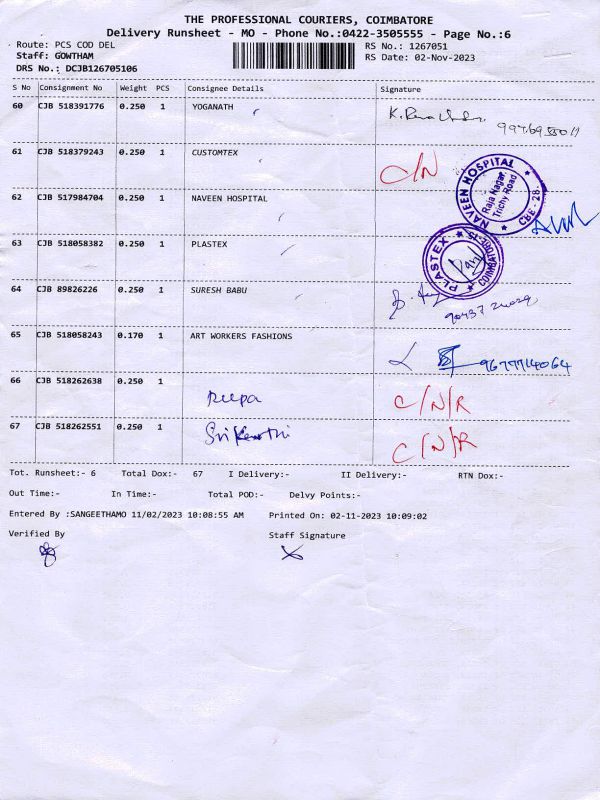 THE PROFESSIONAL COURIERS, COIMBATORE
Delivery Runsheet - MO - Phone No.:0422-3505555 - Page No.:6
Route: PCS COD DEL RS No.: 1267051
Staff: GOWTHAM RS Date: 02-Nov-2023
DRS No.: DCJB126705106
S No Consignment No Weight PCS Consignee Details Signature
60 CJB 518391776 0.250 1 YOGANATH
61 CJB 518379243 0.250 1 CUSTOMTEX C/N
62 CJB 517984704 0.250 1 NAVEEN HOSPITAL
NAVEEN HOSPITAL
Raja Nagar,
Trichy Road
CBE - 28.
63 CJB 518058382 0.250 1 PLASTEX
PLASTEX
64 CJB 89826226 0.250 1 SURESH BABU
65 CJB 518058243 0.170 1 ART WORKERS FASHIONS
9677714064
66 CJB 518262638 0.250 1 Deepa C/N/R
67 CJB 518262551 0.250 1 Srikearthi C/N/R
Tot. Runsheet:- 6 Total Dox:- 67 I Delivery:- II Delivery:- RTN Dox:-
Out Time:- In Time:- Total POD:- Delvy Points:-
Entered By :SANGEETHAMO 11/02/2023 10:08:55 AM Printed On: 02-11-2023 10:09:02
Verified By Staff Signature